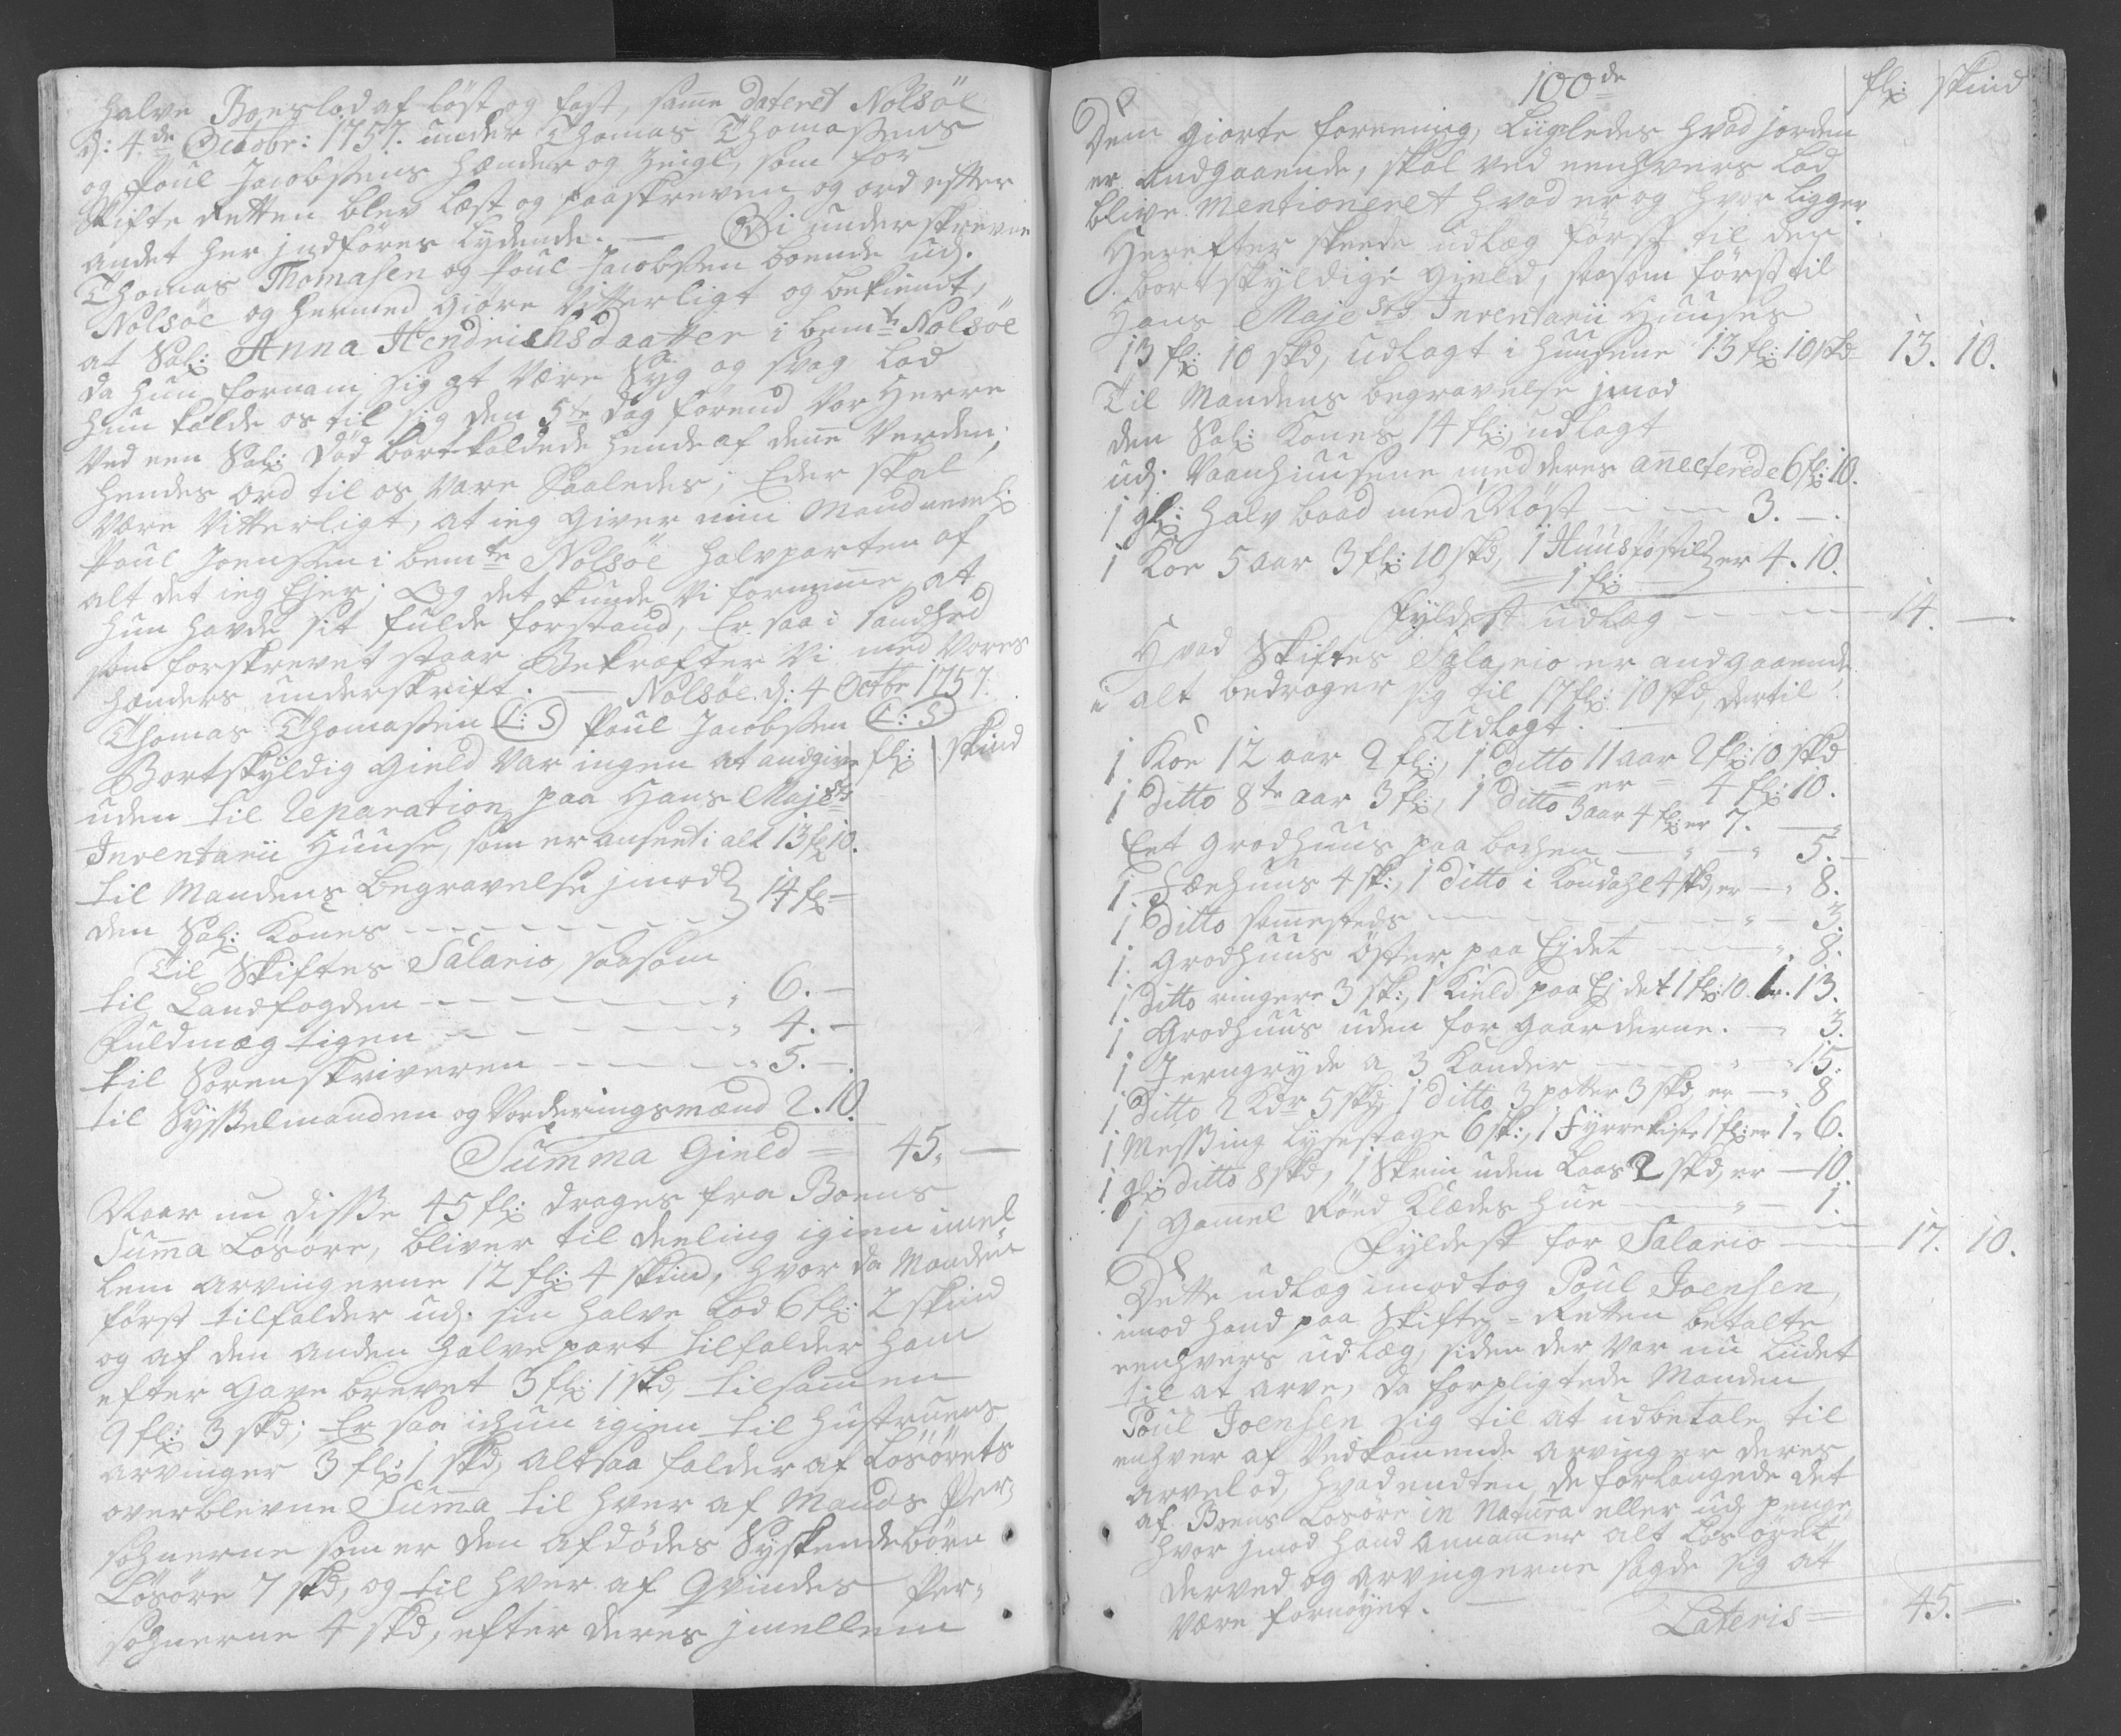 halve Boeslod af löst og fast, samme dateret Nolsöe
d: 4de Octobr: 1757. under Thomas Thomassens
og Poul Jacobssens hænder og Zeigl, som for
Skifte Retten blev læst og paaskreven og ord efter
andet her jndföres lydende. — Vi underskrevne
Thomas Thomasen og Poul Jacobssen boende udj.
Nolsöe og hermed giöre Vitterligt og bekiendt,
at Sal: Anna Hendrichsdaatter i bemte Nolsöe
da hun fornam sig at være Syg og svag lod
hun kalde os til sig den 5te dag forend Vor Herre
Ved een Sal: Död bortkaldede hende af denne Verden,
hendes ord til os vare Saaledes; Eder skal
være Vitterligt, at ieg giver min Mand neml:
Poul Joenssen i bemte Nolsöe halvparten af
alt det ieg Ejer; Og det kunde Vi fornemme at
hun havde sit fulde forstand, Er saa i sandhed
som forskrevet staar Bekræfter Vi med Vores
hænders underskrift. — Nolsöe d: 4 Octbr 1757.
Thomas Thomassen (L:S) Poul Jacobssen (L:S)
Bortskyldig Gield Var ingen at andgive fl: skind
uden til Reparation paa Hans Majsts
Inventarii Huuse, som er anseet i alt 13 fl 10.
til Mandens begravelse jmod
den Sal: Kones — — — — — 14 fl —
Til Skiftes Salario, saasom
til Landfogden — — — — — 6. —
Fuldmægtigen — — — — — 4. —
til Sorenskriveren — — — — 5. —
til Sysselmanden og Vorderingsmænd 2. 10.
Summa Gield = 45. —
Naar nu disse 45 fl: drages fra Boens
Summa Lösöre, bliver til deeling igien imel
lem arvingerne 12 fl: 4 skind, hvor da Manden
först tilfalder udj. sin halve Lod 6 fl: 2 skind
og af den anden halvepart tilfalder ham
efter Gave brevet 3 fl: 1 skd, tilsammen
9 fl: 3 skd; Er saa ichun igien til Hustruens
arvinger 3 fl: 1 skd, altsaa falder af Lösörets
overblevne Summa til hver af Mands Per-
sohnerne som er den afdödes Syskendebörn
Lösöre 7 skd, og til hver af Qvindes Per-
sohnerne 4 skd, efter deres jmellem
100de fl: skind
Dem giorte foreening, Liigeledes hvad jorden
er andgaaende, skal ved eenhvers Lod
blive Mentioneret hvad er og hvor ligger.
Herefter skeede udlæg först til den
bortskyldige Gield, saasom först til
Hans Majesets Inventarii Huuses
13 fl: 10 skd, udlagt i Huusene 13 fl: 10 skd 13. 10.
Til Mandens begravelse jmod
den Sal: Kones 14 fl: udlagt
udj. Vaanhuusene med deres annecterede 6 fl: 10.
1 gl: halv baad med Nöst — — 3. —
1 Koe 5 aar 3 fl: 10 skd, 1 Huus 1 fl: er 4. 10.
Fyldest udlæg — — — 14. —
Hvad Skiftes Salario er andgaaende
i alt bedrager sig til 17 fl: 10 skd, dertil
Udlagt. —
1 Koe 12 aar 2 fl:, 1 ditto 11 aar 2 fl: 10 skd
= er = 4 fl: 10.
1 ditto 8te aar 3 fl:, 1 ditto 3 aar 4 fl: er 7. —
Eet Grodhuus paa bachen — " — " 5. —
1. Fæehuus 4 sk:, 1 ditto i Kondahl 4 skd, er — " 8.
1 ditto sammesteds — — — — " — 3.
1. Grodhuus öster paa Eidet — — — " 8.
1. ditto ringere 3 sk:, 1 Kield paa Eidet 1 fl: 10. er 1. 13.
1 Grodhuus uden for Gaarderne. — " 3.
1 Jerngryde a 3 Kander — — " — 15.
1. ditto 2 Kdr 5 skd, 1 ditto 3 potter 3 skd, er — " 8
1 Messing Lysestage 6 sk:, 1 Fyrrekiste 1 fl: er 1. 6.
1 gl: ditto 8 skd, 1 Skrin uden Laas 2 skd, er — 10.
1 Gammel Röed Klædes hue — " — 1.
Fyldest for Salario — 17. 10.
Dette udlæg imodtog Poul Joensen,
imod hand paa Skifte-Retten betalte
eenhvers udlæg, siden der var nu Lidet
til at arve, da forpligtede Manden
Poul Joensen sig til at udbetale til
enhver af Vedkommende arvinger deres
arvelod, hvad endten de forlangede det
af Boens Lösöre in Natura eller udj penge,
hvor jmod hand annammer alt Lösöret,
derved og arvingerne sagde sig at
være fornöyet. — Lateris = 45. —